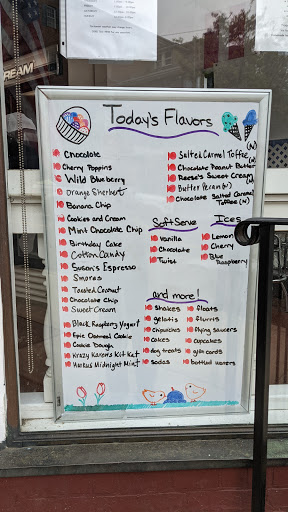 CREAM
Today's Flavors
Chocolate
Cherry Poppins
Wild Blueberry
Orange Sherbert
Banana Chip
Cookies and Cream
Mint Chocolate Chip
Birthday Cake
Cotton Candy
Susan's Espresso
Smores
Toasted Coconut
Chocolate Chip
Sweet Cream
Black Raspberry Yogurt
Epic Oatmeal Cookie
Cookie Dough
Krazy Karen's Kit Kat
Markus Midnight Mint
(N)
Salted Carmel Toffee
(N)
Chocolate Peanut Butter
Reese's Sweet Cream (N)
Butter Pecan (N)
Chocolate Salted Caramel
Toffee (N)
Soft Serve
Vanilla
Chocolate
Twist
Ices
Lemon
Cherry
Blue
Raspberry
and more!
shakes
gelatis
chipwiches
cakes
dog treats
sodas
floats
flurris
flying saucers
cupcakes
gift cards
bottled waters